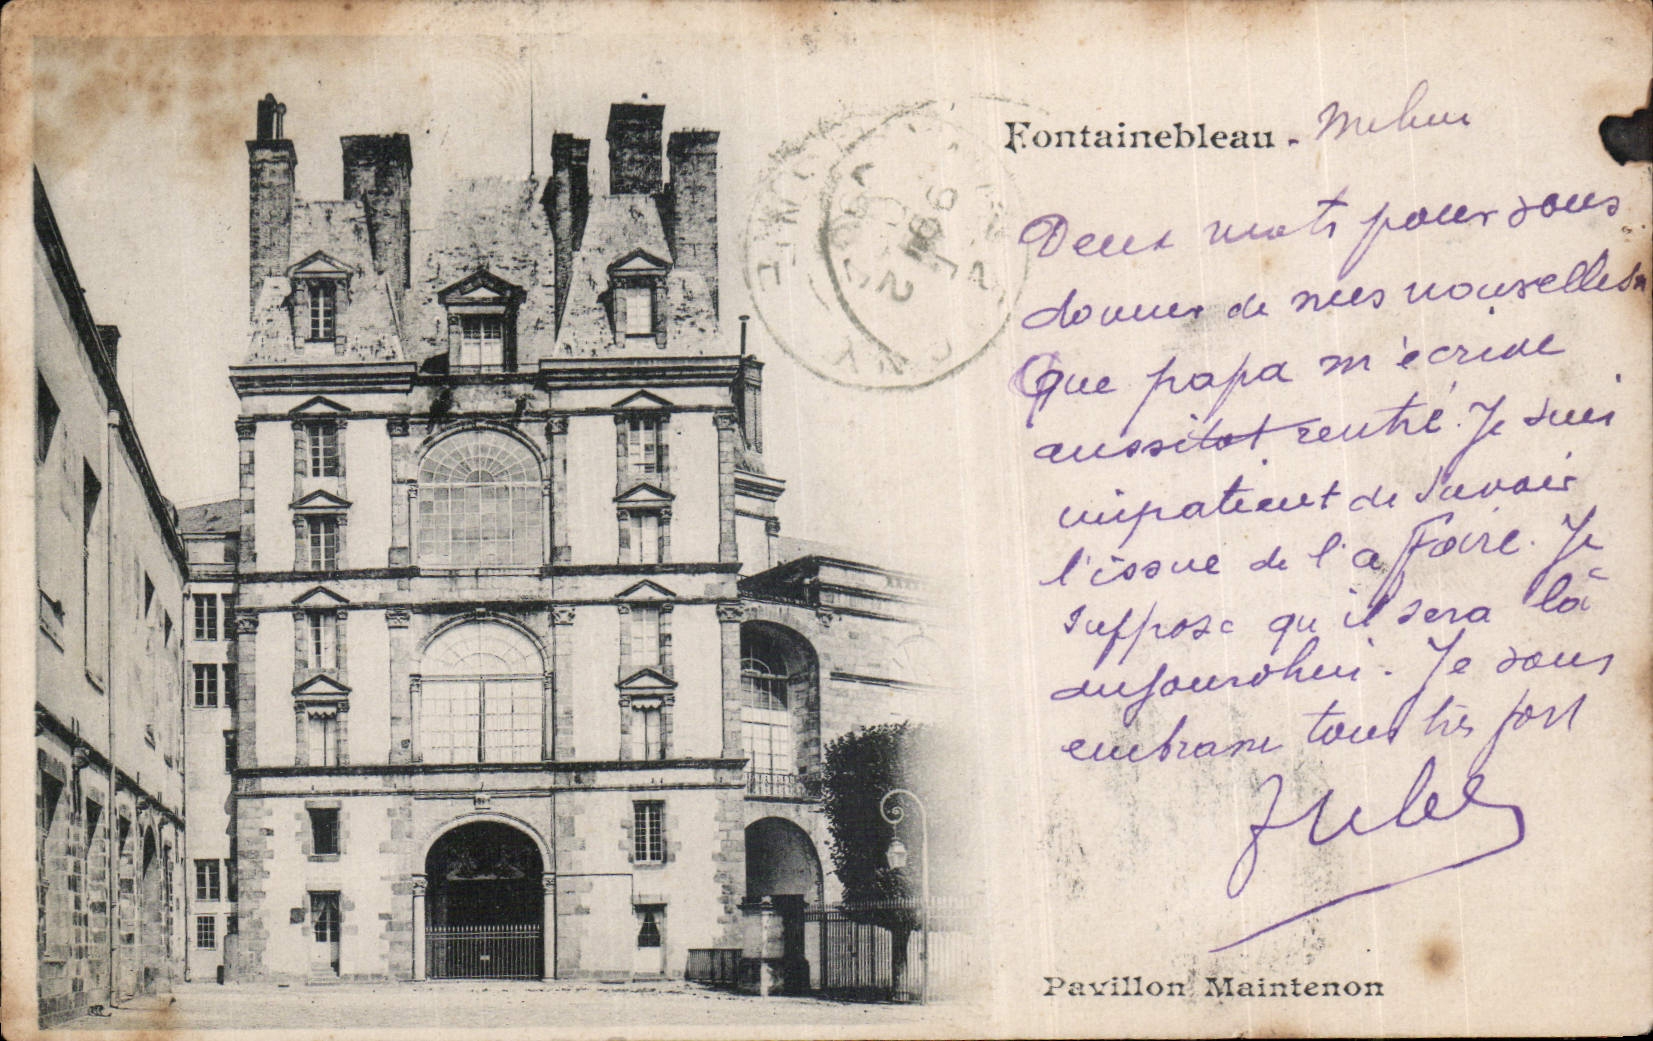 Fontainebleau -
Deux mots pour vous
donner de mes nouvelles
Que papa m'écrive
aussitot rentré. Je suis
impatient de savoir
l'issue de l'affaire. Je
suppose qu'il sera là
aujourdhui. Je vous
embrasse tous très fort
Jules
Pavillon Maintenon